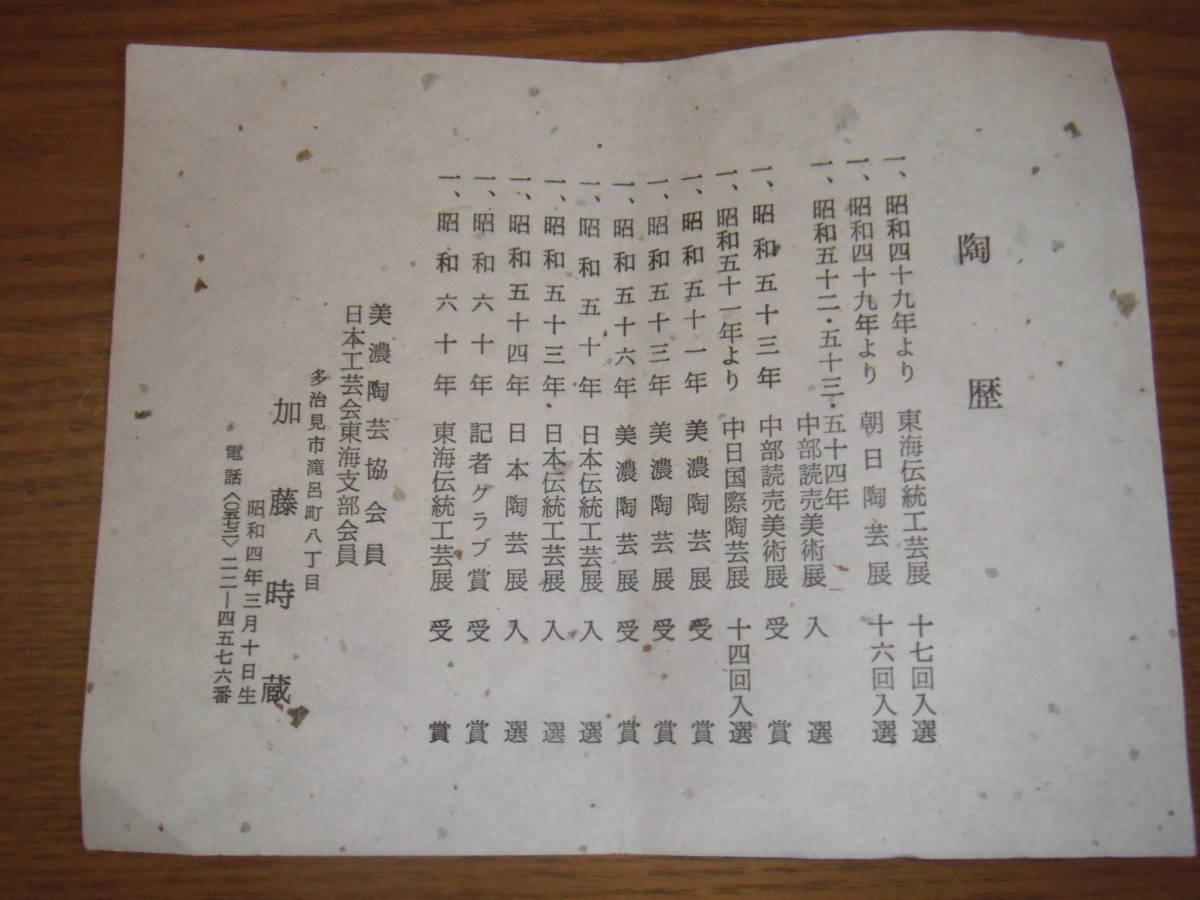 陶歴
一、昭和四十九年より 東海伝統工芸展 十七回入選
一、昭和四十九年より 朝日陶芸展 十六回入選
一、昭和五十二・五十三・五十四年
中部読売美術展 入選
一、昭和五十三年 中部読売美術展 受賞
一、昭和五十一年より 中日国際陶芸展 十四回入選
一、昭和五十一年 美濃陶芸展 受賞
一、昭和五十三年 美濃陶芸展 受賞
一、昭和五十六年 美濃陶芸展 受賞
一、昭和五十年 日本伝統工芸展 入選
一、昭和五十三年 日本伝統工芸展 入選
一、昭和五十四年 日本陶芸展 入選
一、昭和六十年 記者クラブ賞 受賞
一、昭和六十年 東海伝統工芸展 受賞
美濃陶芸協会員
日本工芸会東海支部会員
多治見市滝呂町八丁目
加藤時蔵
昭和四年三月十日生
電話〈〇五七二〉二二―四五七六番